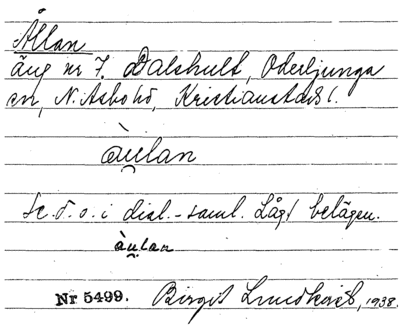 Ållan
äng nr 7. Dalshult, Oderljunga
sn, N. Åsbo hd, Kristianstads l.
àu̯lan
Se d. o. i dial.-saml. Lågt belägen.
àu̯lan
Nr 5499. Birgit Lundkvist, 1938.